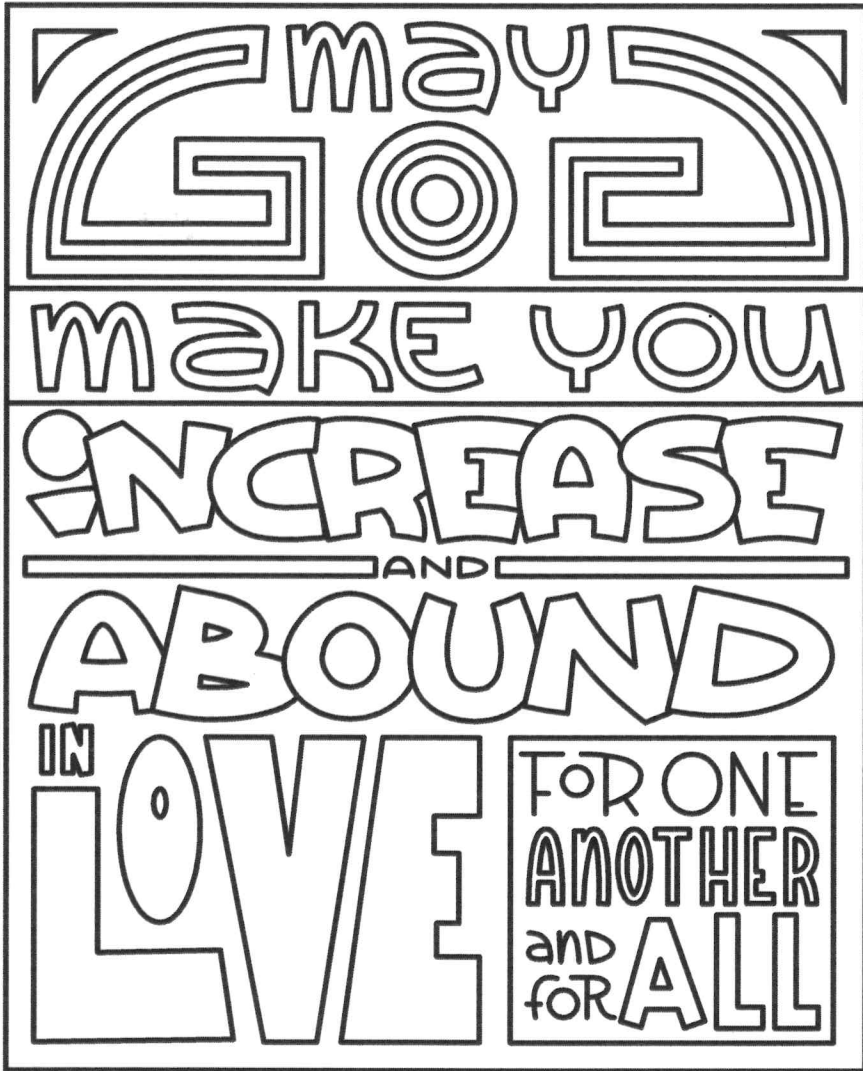 may
GOD
make you
iNCREASE
AND
ABOUND
IN
LOVE
FOR ONE
ANOTHER
and
for ALL